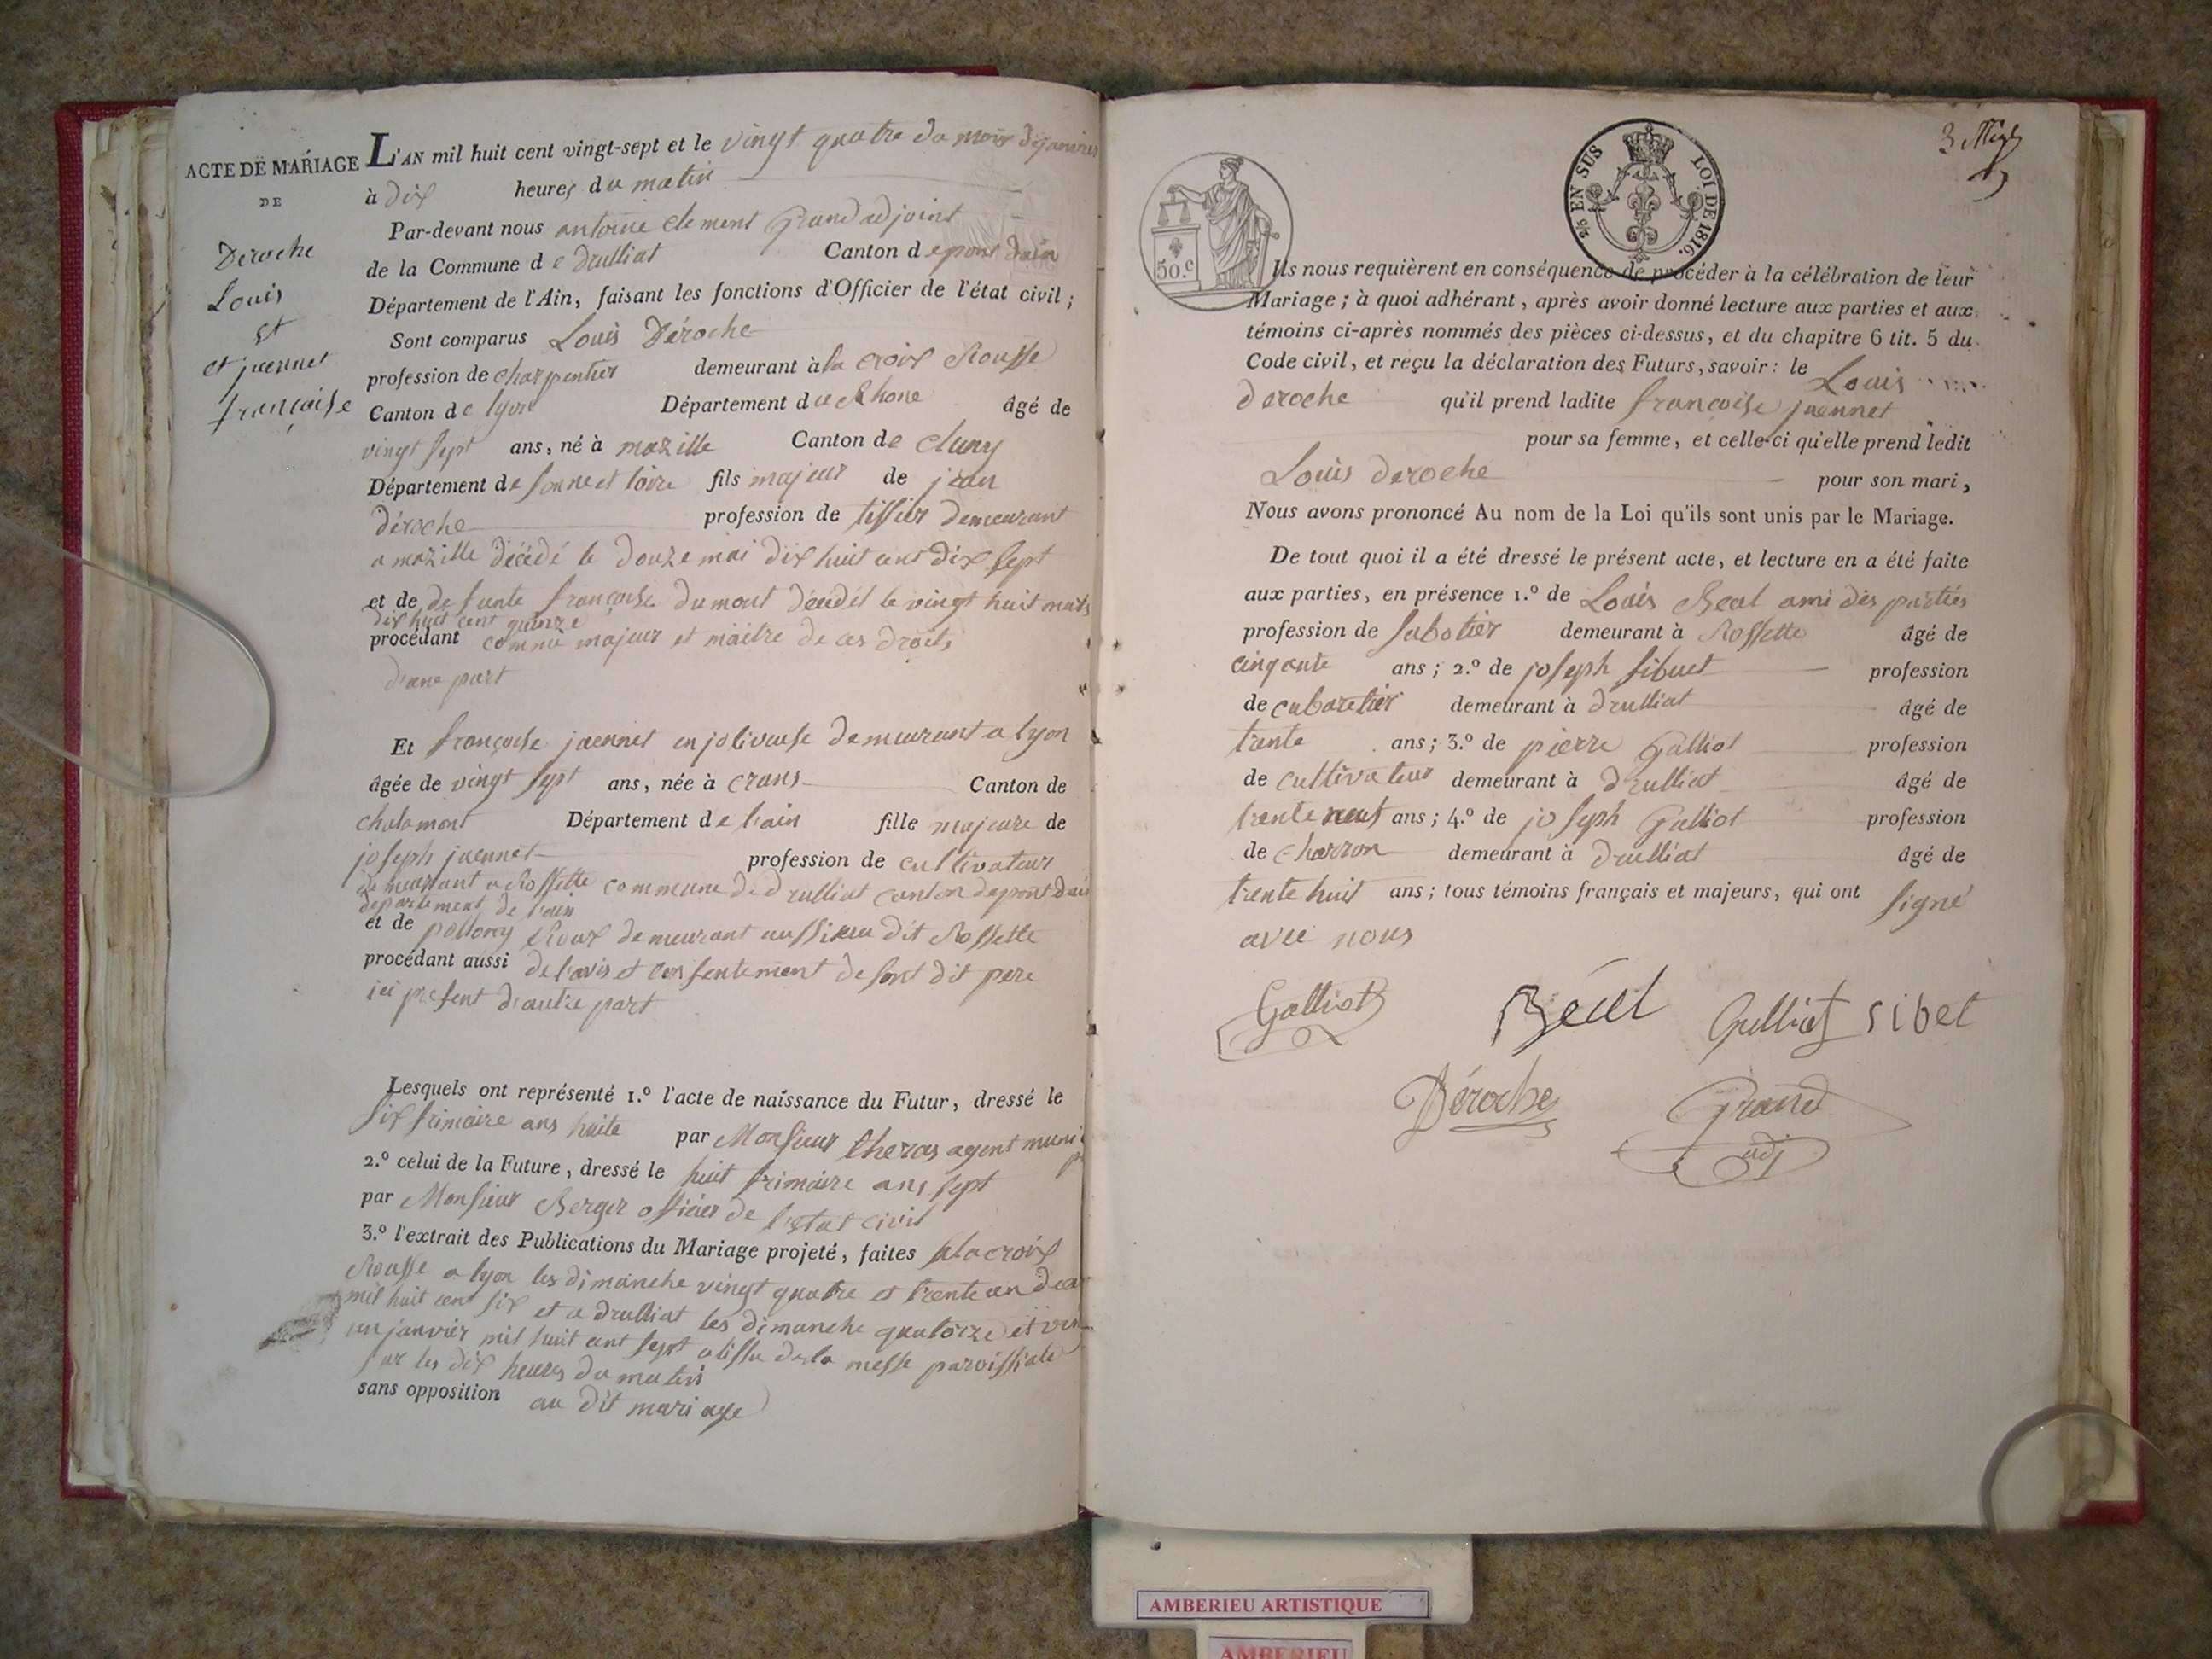 ACTE DE MARIAGE
DE
Déroche
Louis
et
et juennet
françoise
L'AN mil huit cent vingt-sept et le vingt quatre du mois de janvier
à dix heures du matin
Par-devant nous antoine clement Grand adjoint
de la Commune de druilliat Canton de pont dain
Département de l'Ain, faisant les fonctions d'Officier de l'état civil ;
Sont comparus Louis Déroche
profession de charpentier demeurant à la croix Rousse
Canton de lyon Département du Rhone âgé de
vingt sept ans, né à mazille Canton de cluny
Département de sonne et loire fils majeur de jean
déroche profession de tissier demeurant
a mazille décédé le douze mai dix huit cent dix sept
et de defunte françoise dumont décédét le vingt huit mars
dix huit cent quinze
procédant comme majeur et maitre de ces droits
d'une part
Et françoise juennet enjoliveuse demeurant a lyon
âgée de vingt sept ans, née à crans Canton de
chalamont Département de l'ain fille majeure de
joseph juennet profession de cultivateur
demeurant a Rossette commune de druilliat canton de pont dain
departement de l'ain
et de Roux demeurant aussi au dit Rossette
procédant aussi de l'avis et consentement de sont dit pere
ici présent d'autre part
Lesquels ont représenté 1.º l'acte de naissance du Futur, dressé le
six frimaire ans huite par Monsieur theras agent muni
2.º celui de la Future, dressé le huit frimaire ans sept
par Monsieur Berger officier de l'état civil
3.º l'extrait des Publications du Mariage projeté, faites a la croix
Rousse a lyon les dimanche vingt quatre et trente un
mil huit cent six et a druilliat les dimanche quatorze et vin
un janvier mil huit cent sept a lissu de la messe paroissiale
sur les dix heures du matin
sans opposition au dit mariage
3
EN SUS LOI DE 1816.
50.c
Ils nous requièrent en conséquence de procéder à la célébration de leur
Mariage ; à quoi adhérant, après avoir donné lecture aux parties et aux
témoins ci-après nommés des pièces ci-dessus, et du chapitre 6 tit. 5 du
Code civil, et reçu la déclaration des Futurs, savoir : le Louis
deroche qu'il prend ladite françoise juennet
pour sa femme, et celle-ci qu'elle prend ledit
Louis deroche pour son mari,
Nous avons prononcé Au nom de la Loi qu'ils sont unis par le Mariage.
De tout quoi il a été dressé le présent acte, et lecture en a été faite
aux parties, en présence 1.º de Louis Beal ami des parties
profession de sabotier demeurant à Rossette âgé de
cinqante ans ; 2.º de joseph sibuet profession
de cabaretier demeurant à druilliat âgé de
trente ans ; 3.º de pierre Galliot profession
de cultivateur demeurant à druilliat âgé de
trente neuf ans ; 4.º de joseph Galliot profession
de charron demeurant à druilliat âgé de
trente huit ans ; tous témoins français et majeurs, qui ont signé
avec nous
Galliot Béal Galliot sibet
Déroche Grand
adj
AMBERIEU ARTISTIQUE
AMBERIEU